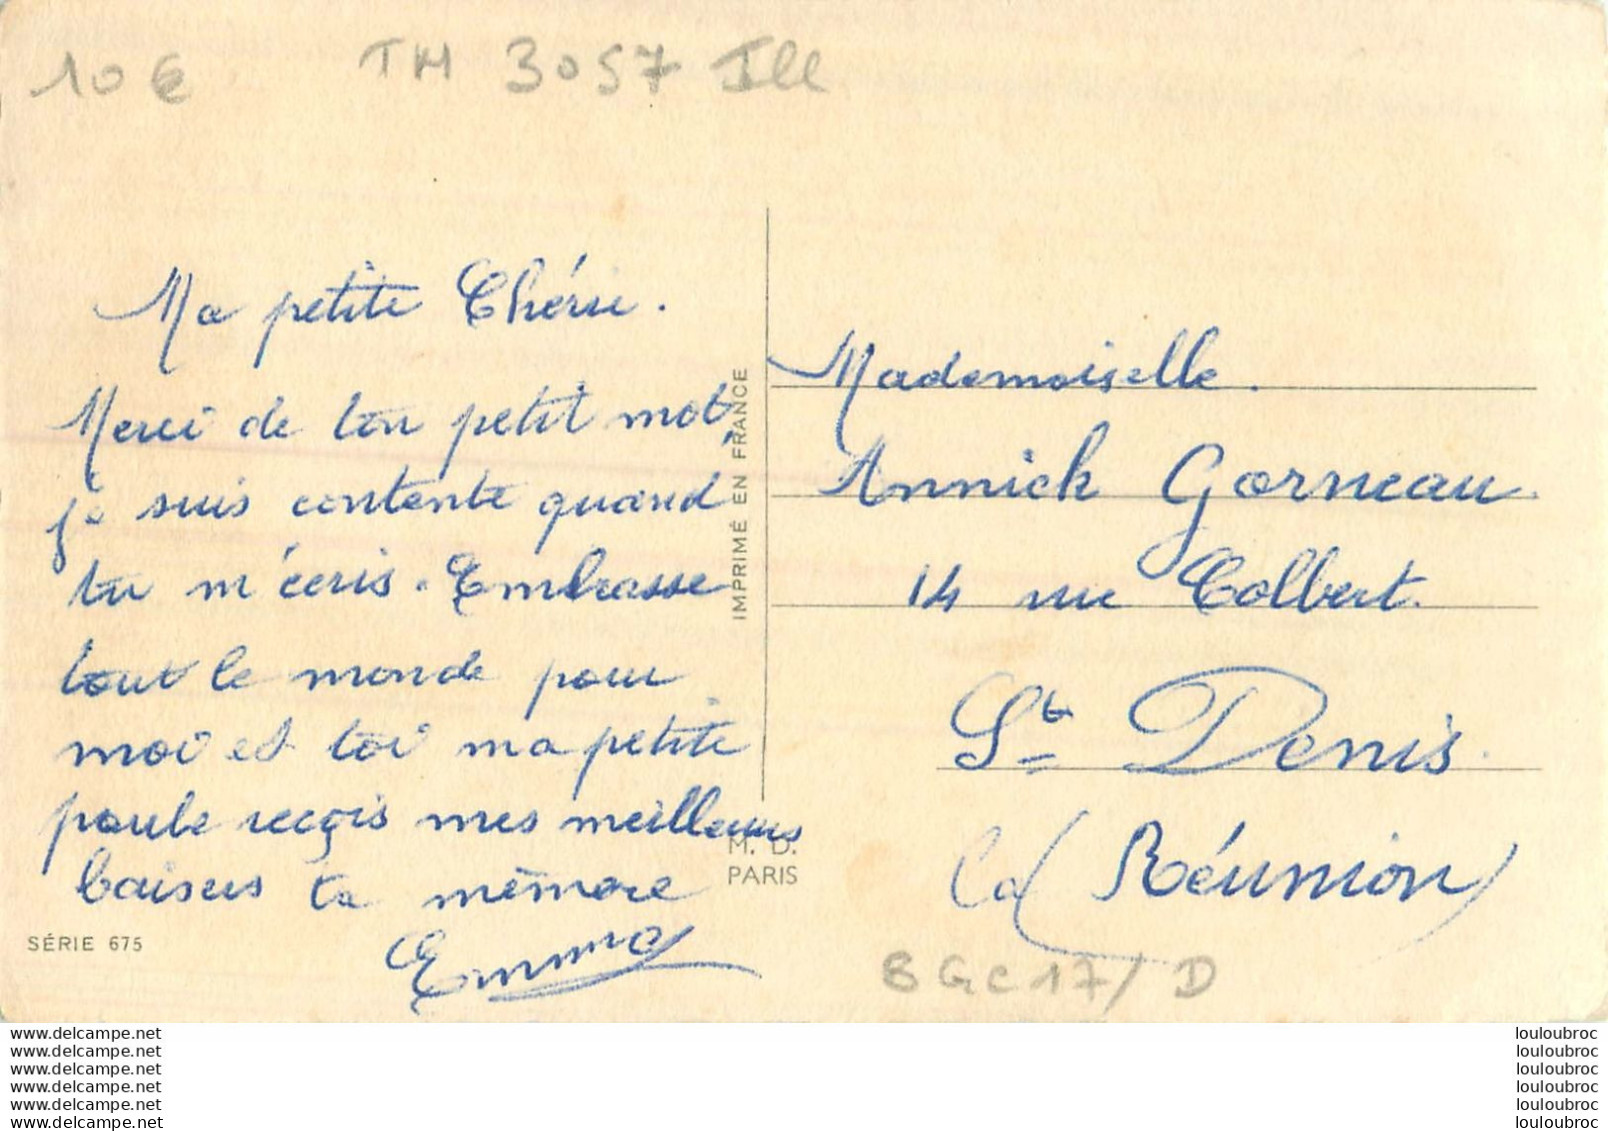 10 €
TM 3057 Ill
Ma petite Chérie.
Merci de ton petit mot,
je suis contente quand
tu m'écris. Embrasse
tout le monde pour
moi et toi ma petite
poule reçois mes meilleurs
baisers ta mémère
Emma
SÉRIE 675
IMPRIMÉ EN FRANCE
M. D.
PARIS
Mademoiselle.
Annick Gorneau.
14 rue Colbert.
St Denis.
(La Réunion)
BGC17/D
www.delcampe.net
www.delcampe.net
www.delcampe.net
www.delcampe.net
www.delcampe.net
www.delcampe.net
louloubroc
louloubroc
louloubroc
louloubroc
louloubroc
louloubroc